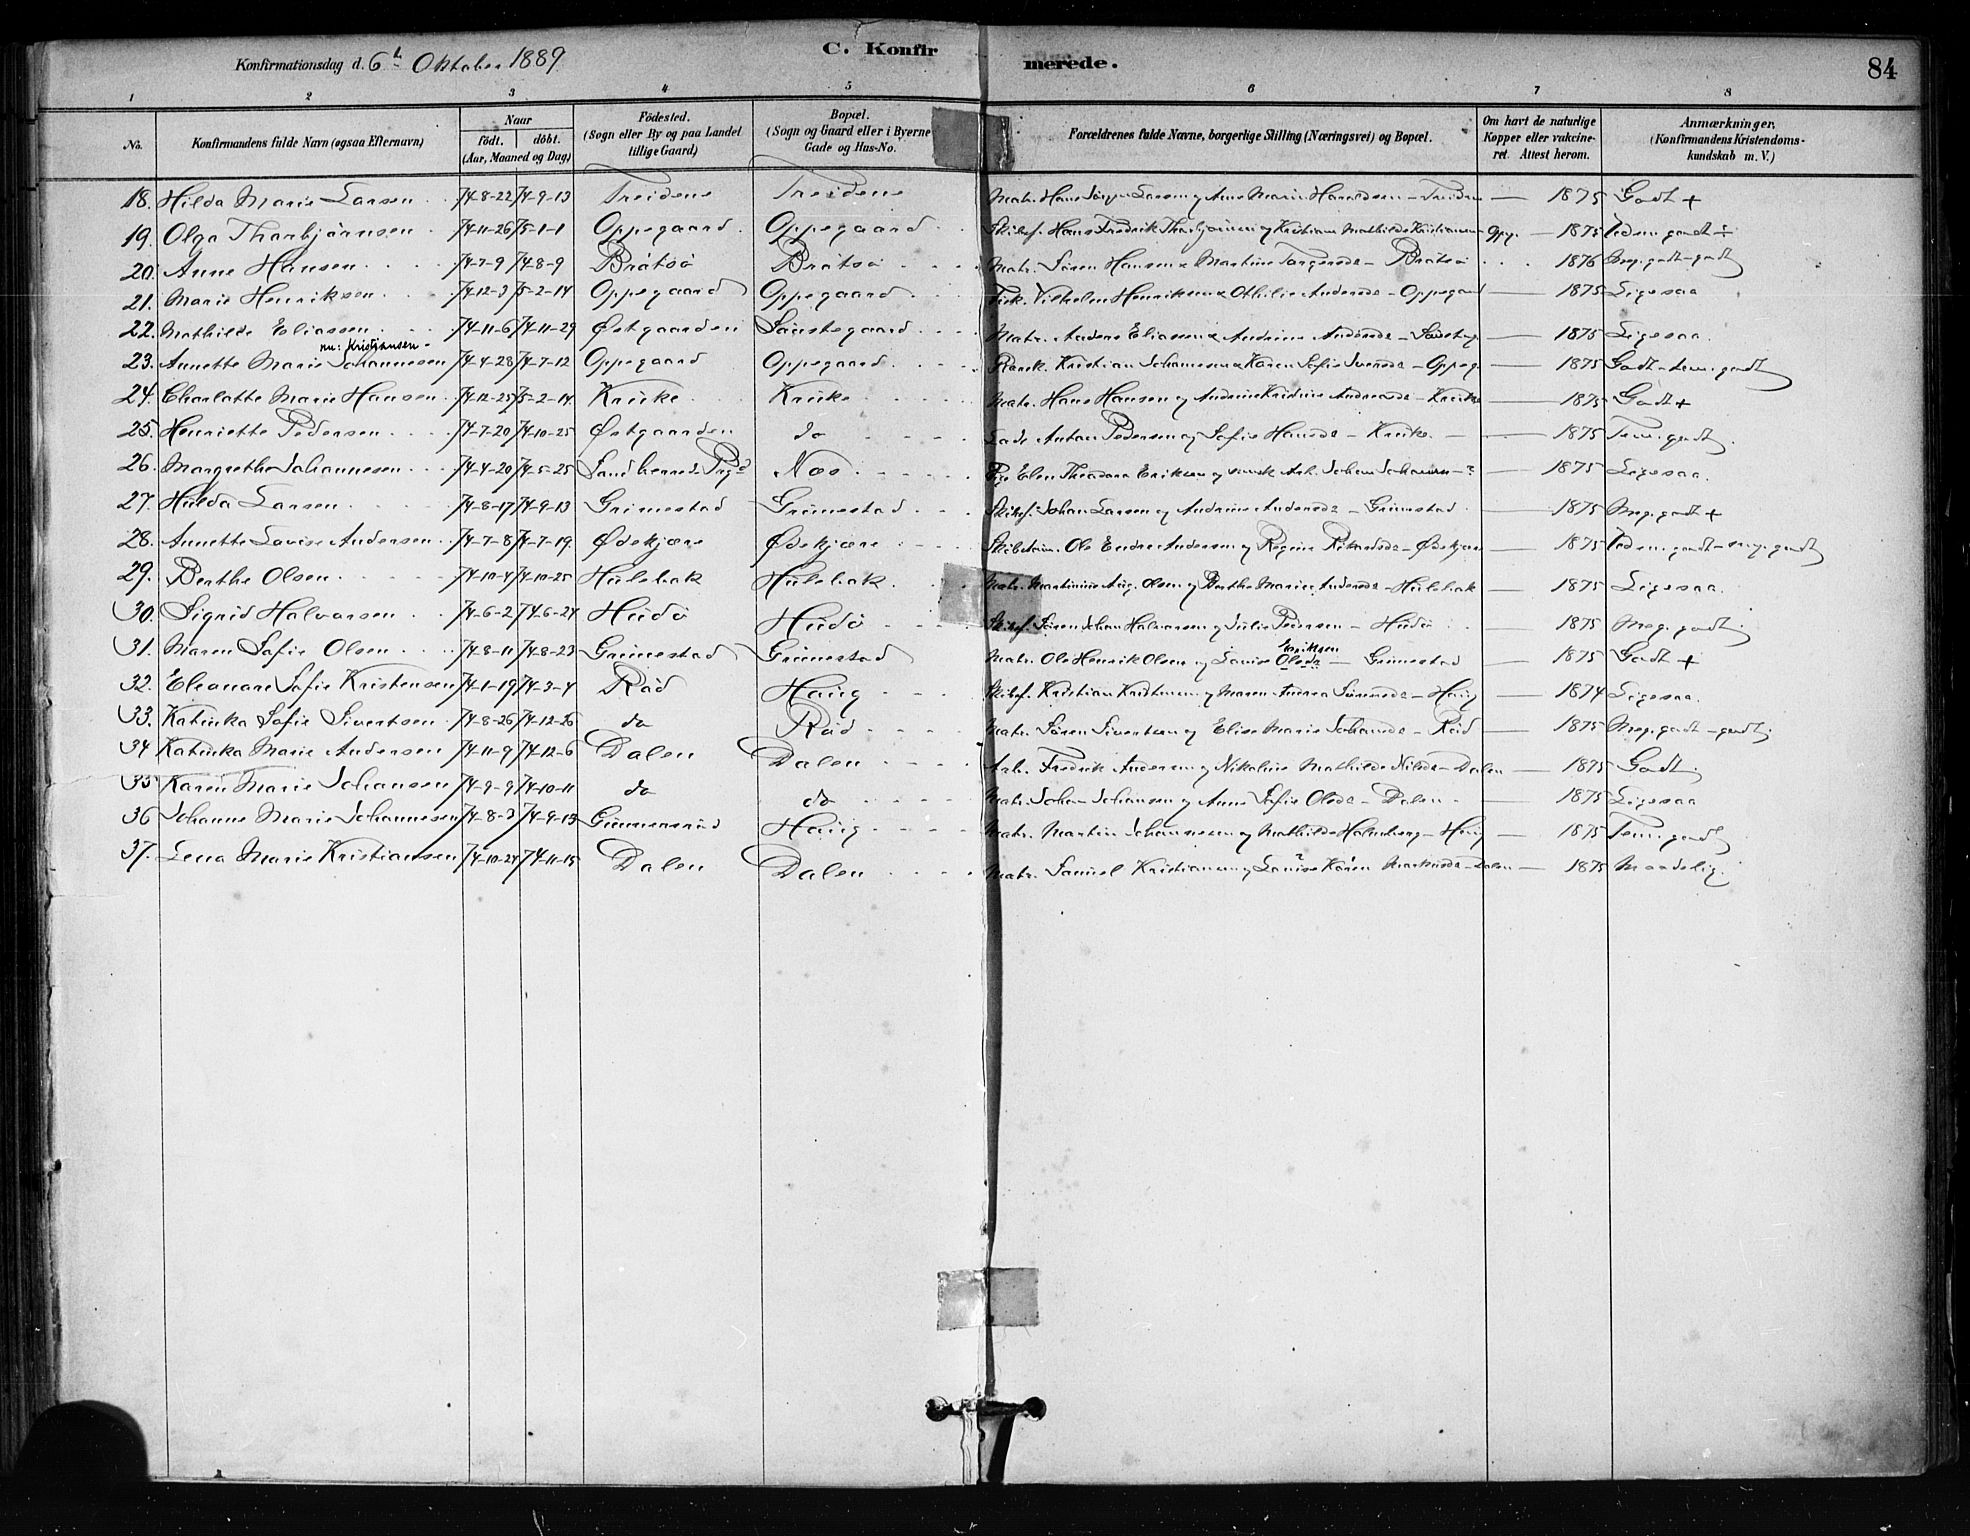 Konfirmationsdag d. 6h Oktober 1889
C. Konfirmerede.
84
1 2 3 4 5 6 7 8
No.
Konfirmandens fulde Navn (ogsaa Efternavn)
Naar
født. døbt.
(Aar, Maaned og Dag)
Fødested.
(Sogn eller By og paa Landet
tillige Gaard)
Bopæl.
(Sogn og Gaard eller i Byerne
Gade og Hus-No.
Forældrenes fulde Navne, borgerlige Stilling (Næringsvei) og Bopæl.
Om havt de naturlige
Kopper eller vakcine-
ret. Attest herom.
Anmærkninger.
(Konfirmandens Kristendoms-
kundskab m. V.)
18. Hilda Marie Larsen 74-8-22 74-9-13 Treidene Treidene Matr. Hans Larsen og Anne Marie — 1875 Godt +
19. Olga Thorbjørnsen 74-11-26 75-1-1 Oppegaard Oppegaard Skibsf. Hans Fredrik Thorbjørnsen og Kristiane Mathilde Kristiansen — 1875 godt
20. Anne Hansen 74-7-9 74-8-9 Bråtsø Bråtsø Matr. Søren Hansen & Martine Torgersdr - Bråtsø 1876 Meg. godt - godt
21. Marie Henriksen 74-12-3 75-2-14 Oppegaard Oppegaard Fisk. Vilhelm Henriksen & Othilie Andersdr - Oppegaard — 1875 Ligesaa
22. Mathilde Eliassen 74-11-6 74-11-29 Østgaarden Matr. Anders Eliassen & Andrine Andersdr — 1875 Ligesaa.
nu: Kristiansen
23. Annette Marie Johannesen 74-4-28 74-7-12 Oppegaard Oppegaard Kristian Johannesen & Karen Sofie Iversdr - Oppeg. — 1875 Godt - tem. godt
24. Charlotte Marie Hansen 74-12-25 75-2-14 Kruke Kruke Matr. Hans Hansen og Andrine Kristine Andreasdr - Kruke — 1875 Godt +
25. Henriette Pedersen 74-7-20 74-10-25 Østgaarden do Lods Anton Pedersen og Sofie Hansdr - Kruke — 1875 Tem. godt.
26. Margrethe Johannesen 74-4-20 74-5-25 Sandherred Prg? Nes Pige Elen Theodora Eriksen og svensk Arb. Johan Johansen - ? — 1875 Ligesaa.
27. Hulda Larsen 74-8-17 74-9-13 Grimestad Grimestad Skibsf. Johan Larsen og Andrine Andersdr - Grimestad 1875 Meg. godt +
28. Annette Lovise Andersen 74-7-8 74-7-19 Ødekjære Ødekjære Ole Andersen og Regine - Ødekjære — 1875 godt - meg. godt
29. Berthe Olsen 74-10-4 74-10-25 Hulebak Hulebak Matr. Martinius Aug. Olsen og Berthe Marie Andersdr - Hulebak — 1875 Ligesaa.
30. Sigrid Halvorsen 74-6-2 74-6-24 Hudø Hudø Skibsf. Søren Johan Halvorsen og Julie Pedersen - Hudø 1875 Meg. godt.
31. Maren Sofie Olsen 74-8-11 74-8-23 Grimestad Grimestad Matr. Ole Henrik Olsen og Lovise Olsdr Henriksen - Grimestad 1875 Godt +
32. Eleonore Sofie Kristensen 74-1-19 74-3-4 Råd Haug Skibsf. Kristian Kristensen og Maren Andrea Sørensdr - Haug — 1874 Ligesaa.
33. Katinka Sofie Sivertsen 74-8-26 74-12-26 do Råd Matr. Søren Sivertsen og Elise Marie Johansdr - Råd — 1875 Meg. godt - godt.
34 Katinka Marie Andersen 74-11-9 74-12-6 Dalen Dalen Arb. Fredrik Andersen og Nikoline Mathilde Nilsdr - Dalen — 1875 Godt.
35 Karen Marie Johansen 74-9-9 74-10-11 do do Matr. Johan Johansen og Anne Sofie Olsdr - Dalen — 1875 Ligesaa
36 Johanne Marie Johannesen 74-8-3 74-9-13 Haug Matr. Martin Johannesen og Mathilde Holmberg - Haug — 1875 Tem. godt
37. Lena Marie Kristiansen 74-10-24 74-11-15 Dalen Dalen Matr. Samuel Kristiansen og Lovise? Karen Markusdr - Dalen — 1875 Maadelig.